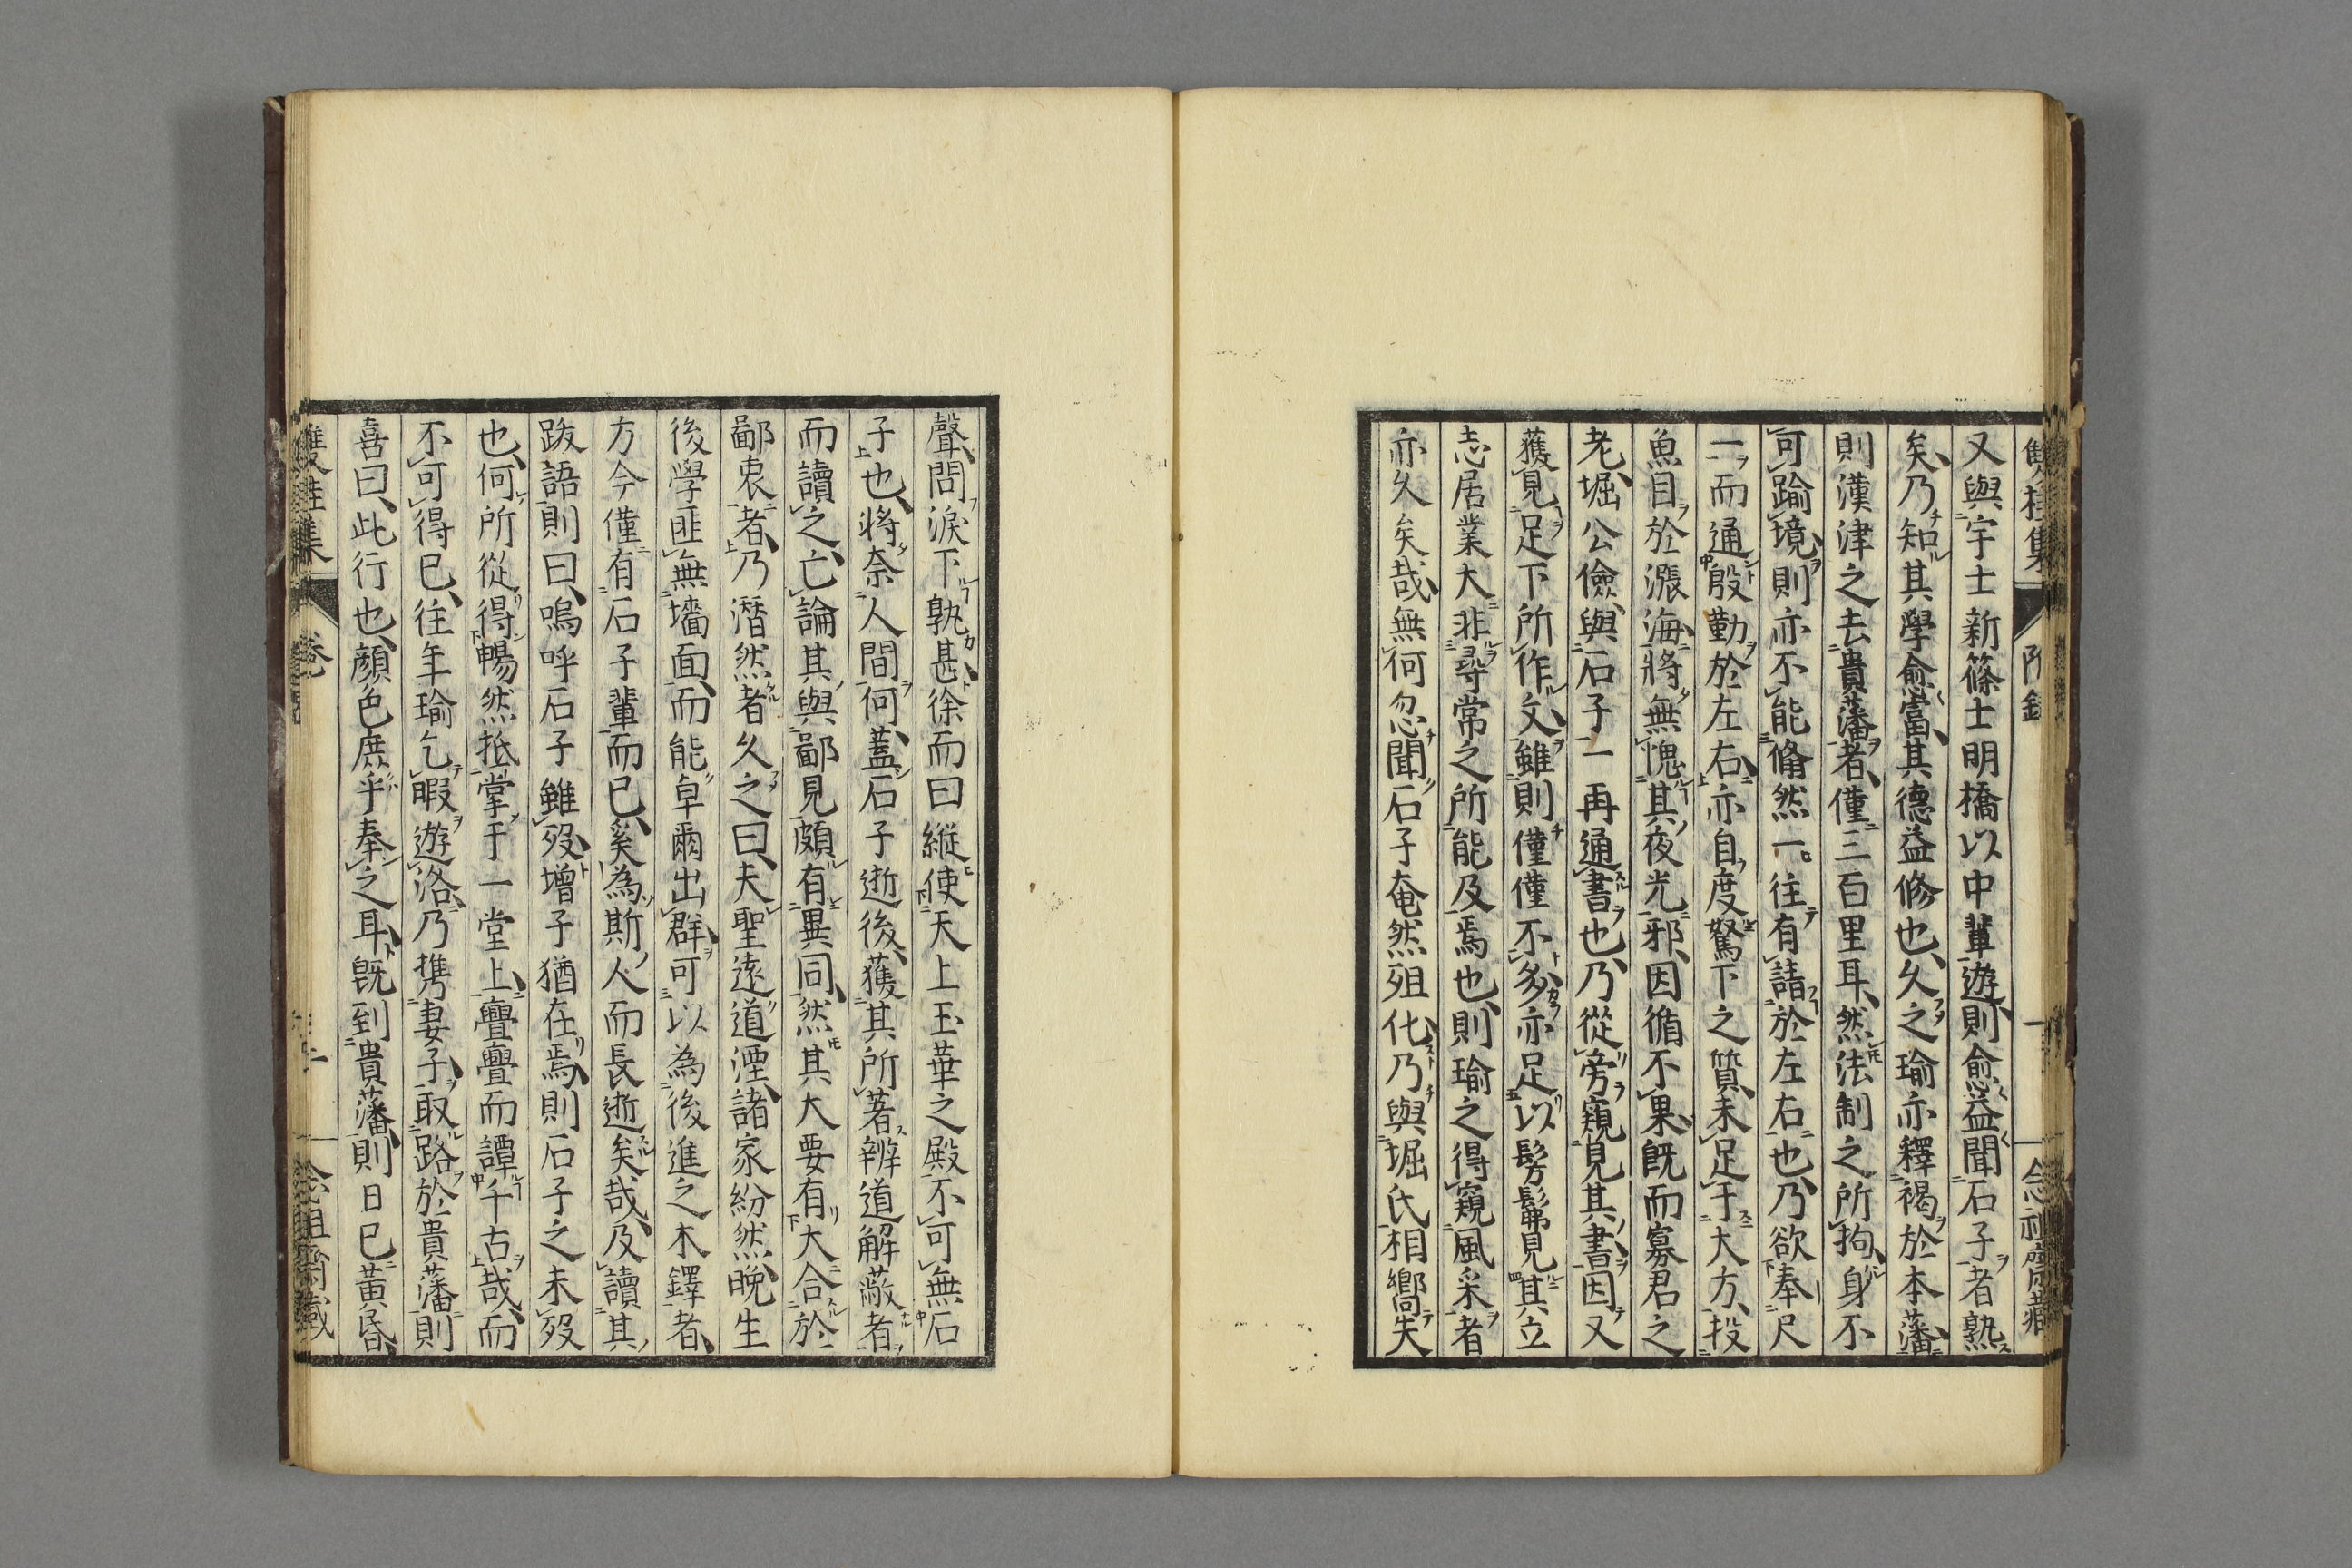 雙桂集 附錄 二 念祖齋藏
又與宇士新篠士明橋以中輩遊則愈益聞石子者熟
矣乃知其學愈當其德益修也久之瑜亦釋褐於本藩
則漢津之去貴藩者僅三百里耳然法制之所拘身不
可踰境則亦不能脩然一往有請於左右也乃欲奉尺
一而通殷勤於左右亦自度駑下之質未足于大方投
魚目於漲海將無愧其夜光邪因循不果既而寡君之
老堀公儉與石子一再通書也乃從旁窺見其書因又
獲見足下所作文雖則僅僅不多亦足以髣髴見其立
志居業大非尋常之所能及焉也則瑜之得窺風采者
亦久矣哉無何忽聞石子奄然殂化乃與堀氏相嚮失
聲問淚下孰甚徐而曰縱使天上玉華之殿不可無石
子也將奈人間何蓋石子逝後獲其所著辨道解蔽者
而讀之亡論其與鄙見頗有異同然其大要有大合於
鄙衷者乃潛然者久之曰夫聖遠道湮諸家紛然晚生
後學匪無墻面而能卓爾出群可以為後進之木鐸者
方今僅有石子輩而已奚為斯人而長逝矣哉及讀其
跋語則曰嗚呼石子雖歿增子猶在焉則石子之未歿
也何所從得暢然抵掌于一堂上亹亹而譚千古哉而
不可得已往年瑜乞暇遊洛乃携妻子取路於貴藩則
喜曰此行也顏色庶乎奉之耳既到貴藩則日已黃昏
雙桂集 念祖齋藏